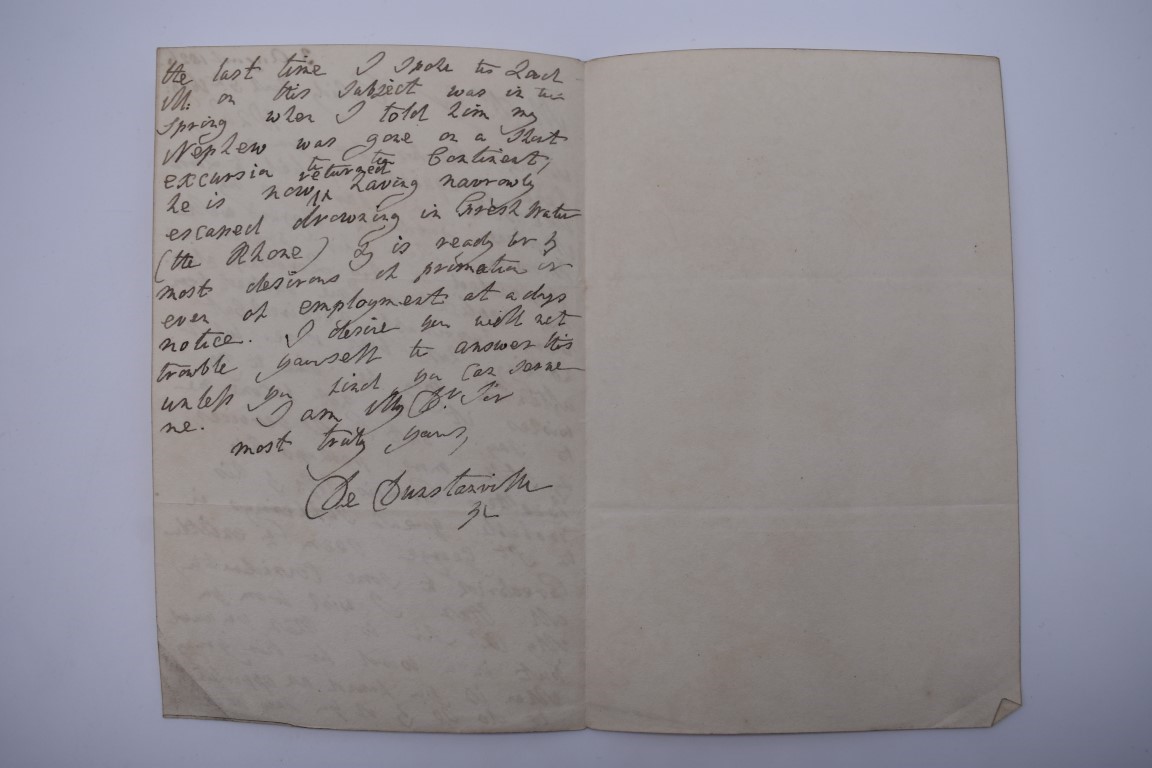 the last time I spoke to Lord
M. on this subject was in the
spring when I told him my
Nephew was gone on a short
excursion to the Continent,
he is now returned having narrowly
escaped drowning in fresh water
(the Rhone) & is ready for &
most desirous of promotion or
even of employment at a days
notice. I desire you will not
trouble yourself to answer this
unless you find you can serve
me. I am My Dr. Sir
most truly yours,
De Dunstanville